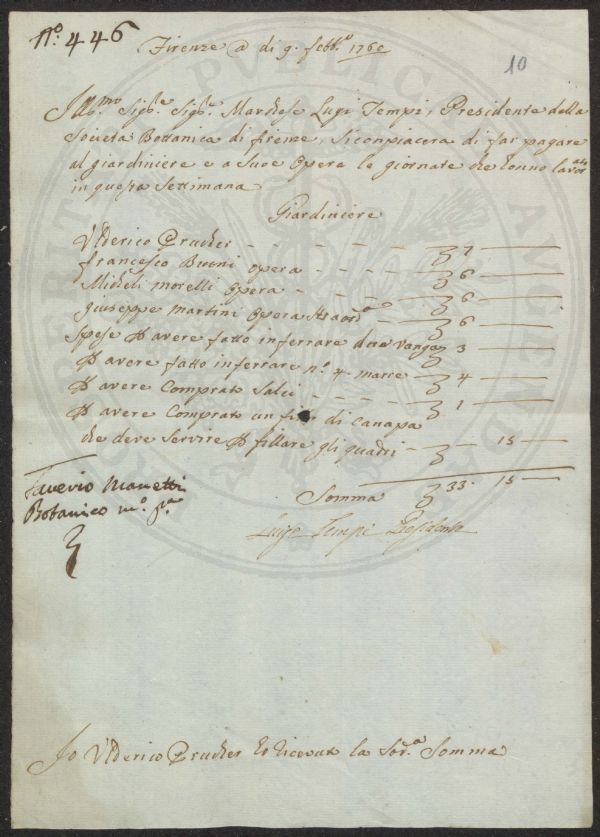 N.º 446
Firenze @ di 9. febb.º 1760
10
Ill.mo Sig.re Sig.re Marchese Luigi Tempi, Presidente della
Società Bottanica di firenze, Si conpiacera di far pagare
al giardiniere e a Sue Opera le giornate che donno lavorato
in questa Settimana
Giardiniere
Ulderico Prucher 7
francesco Buoni opera 6
Micheli morelli opera 6
giuseppe martini opera straord.º 6
Spese P avere fatto inferrare due vanga 3
P avere fatto inferrare n.º 4 marre 4
P avere Comprato Salci 1
P avere Comprato un di Canapa
che deve Servire P fillare gli quadri 15
Somma 33. 15
Saverio Manetti
Botanico m.º p.ª
Luigi Tempi Presidente
Io Ulderico Prucher ho ricevuto la Sod.ª Somma
PUBLICAE